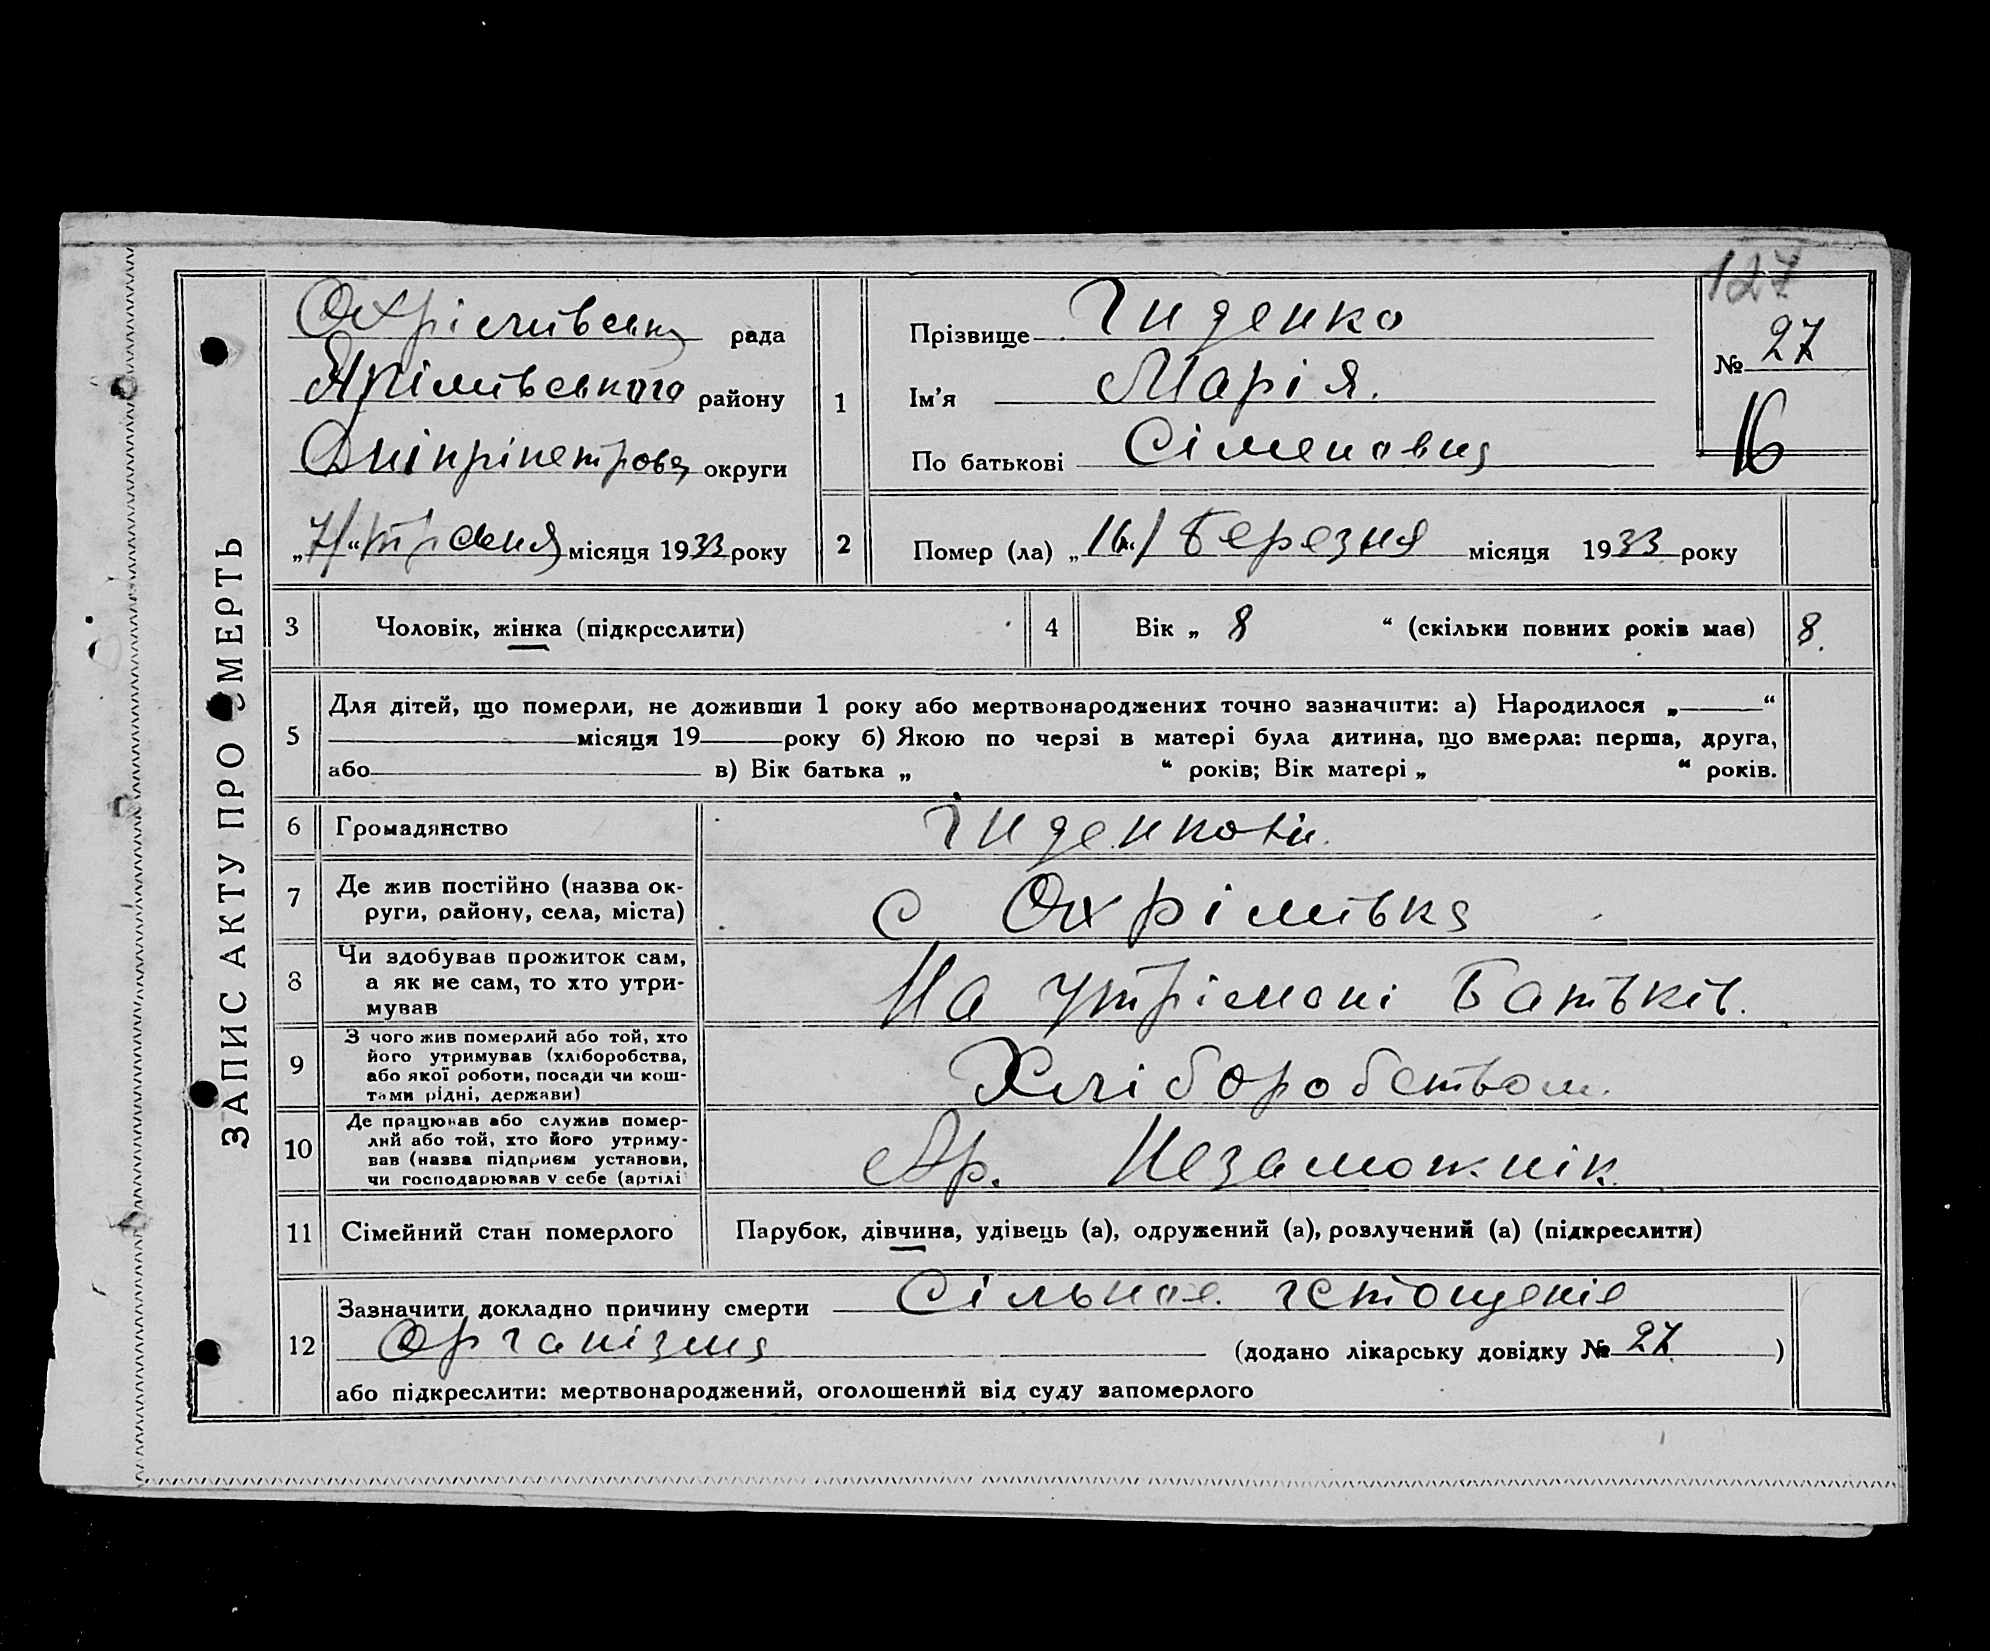 127
Охрімівська рада
Якімівського району
Дніпріпетровз округи
„7/“ травня місяця 1933 року
ЗАПИС АКТУ ПРО СМЕРТЬ
1
Прізвище Гиденко
Ім'я Марія.
По батькові Сіменовна
№ 27
16
2
Помер (ла) „16“/ Березня місяця 1933 року
3 Чоловік, жінка (підкреслити)
4 Вік „ 8 “ (скільки повних років має) 8.
5
Для дітей, що померли, не доживши 1 року або мертвонароджених точно зазначити: а) Народилося „ “
місяця 19 року б) Якою по черзі в матері була дитина, що вмерла: перша, друга,
або в) Вік батька „ “ років; Вік матері „ “ років.
6 Громадянство
7 Де жив постійно (назва ок-
руги, району, села, міста)
с Охрімівка
8 Чи здобував прожиток сам,
а як не сам, то хто утри-
мував
На утрімані Батьків.
9 З чого жив померлий або той, хто
його утримував (хліборобства,
або якої роботи, посади чи кош-
тами рідні, держави)
Хліборобством.
10 Де працював або служив помер-
лий або той, хто його утриму-
вав (назва підприєм установи,
чи господарював у себе (артілі
Ар. Незаможнік.
11 Сімейний стан померлого
Парубок, дівчина, удівець (а), одружений (а), розлучений (а) (підкреслити)
12
Зазначити докладно причину смерти Сільное істощеніе
Організма (додано лікарську довідку № 27. )
або підкреслити: мертвонароджений, оголошений від суду запомерлого